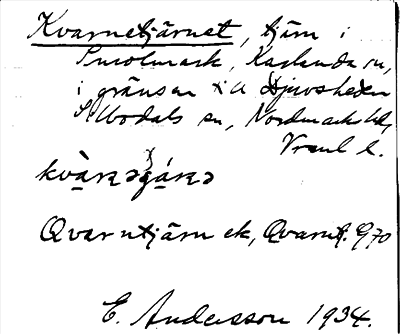 Kvarnetjärnet, tjärn i
Smolmark, Karlanda sn,
i gränsen till Djuvsheden
S. Ilbodals sn, Nordmark hd,
Vrml l.
kvàɳəʒáɳə
Qvarntjärn ek, Qvarnt. G70
E. Andersson 1934.